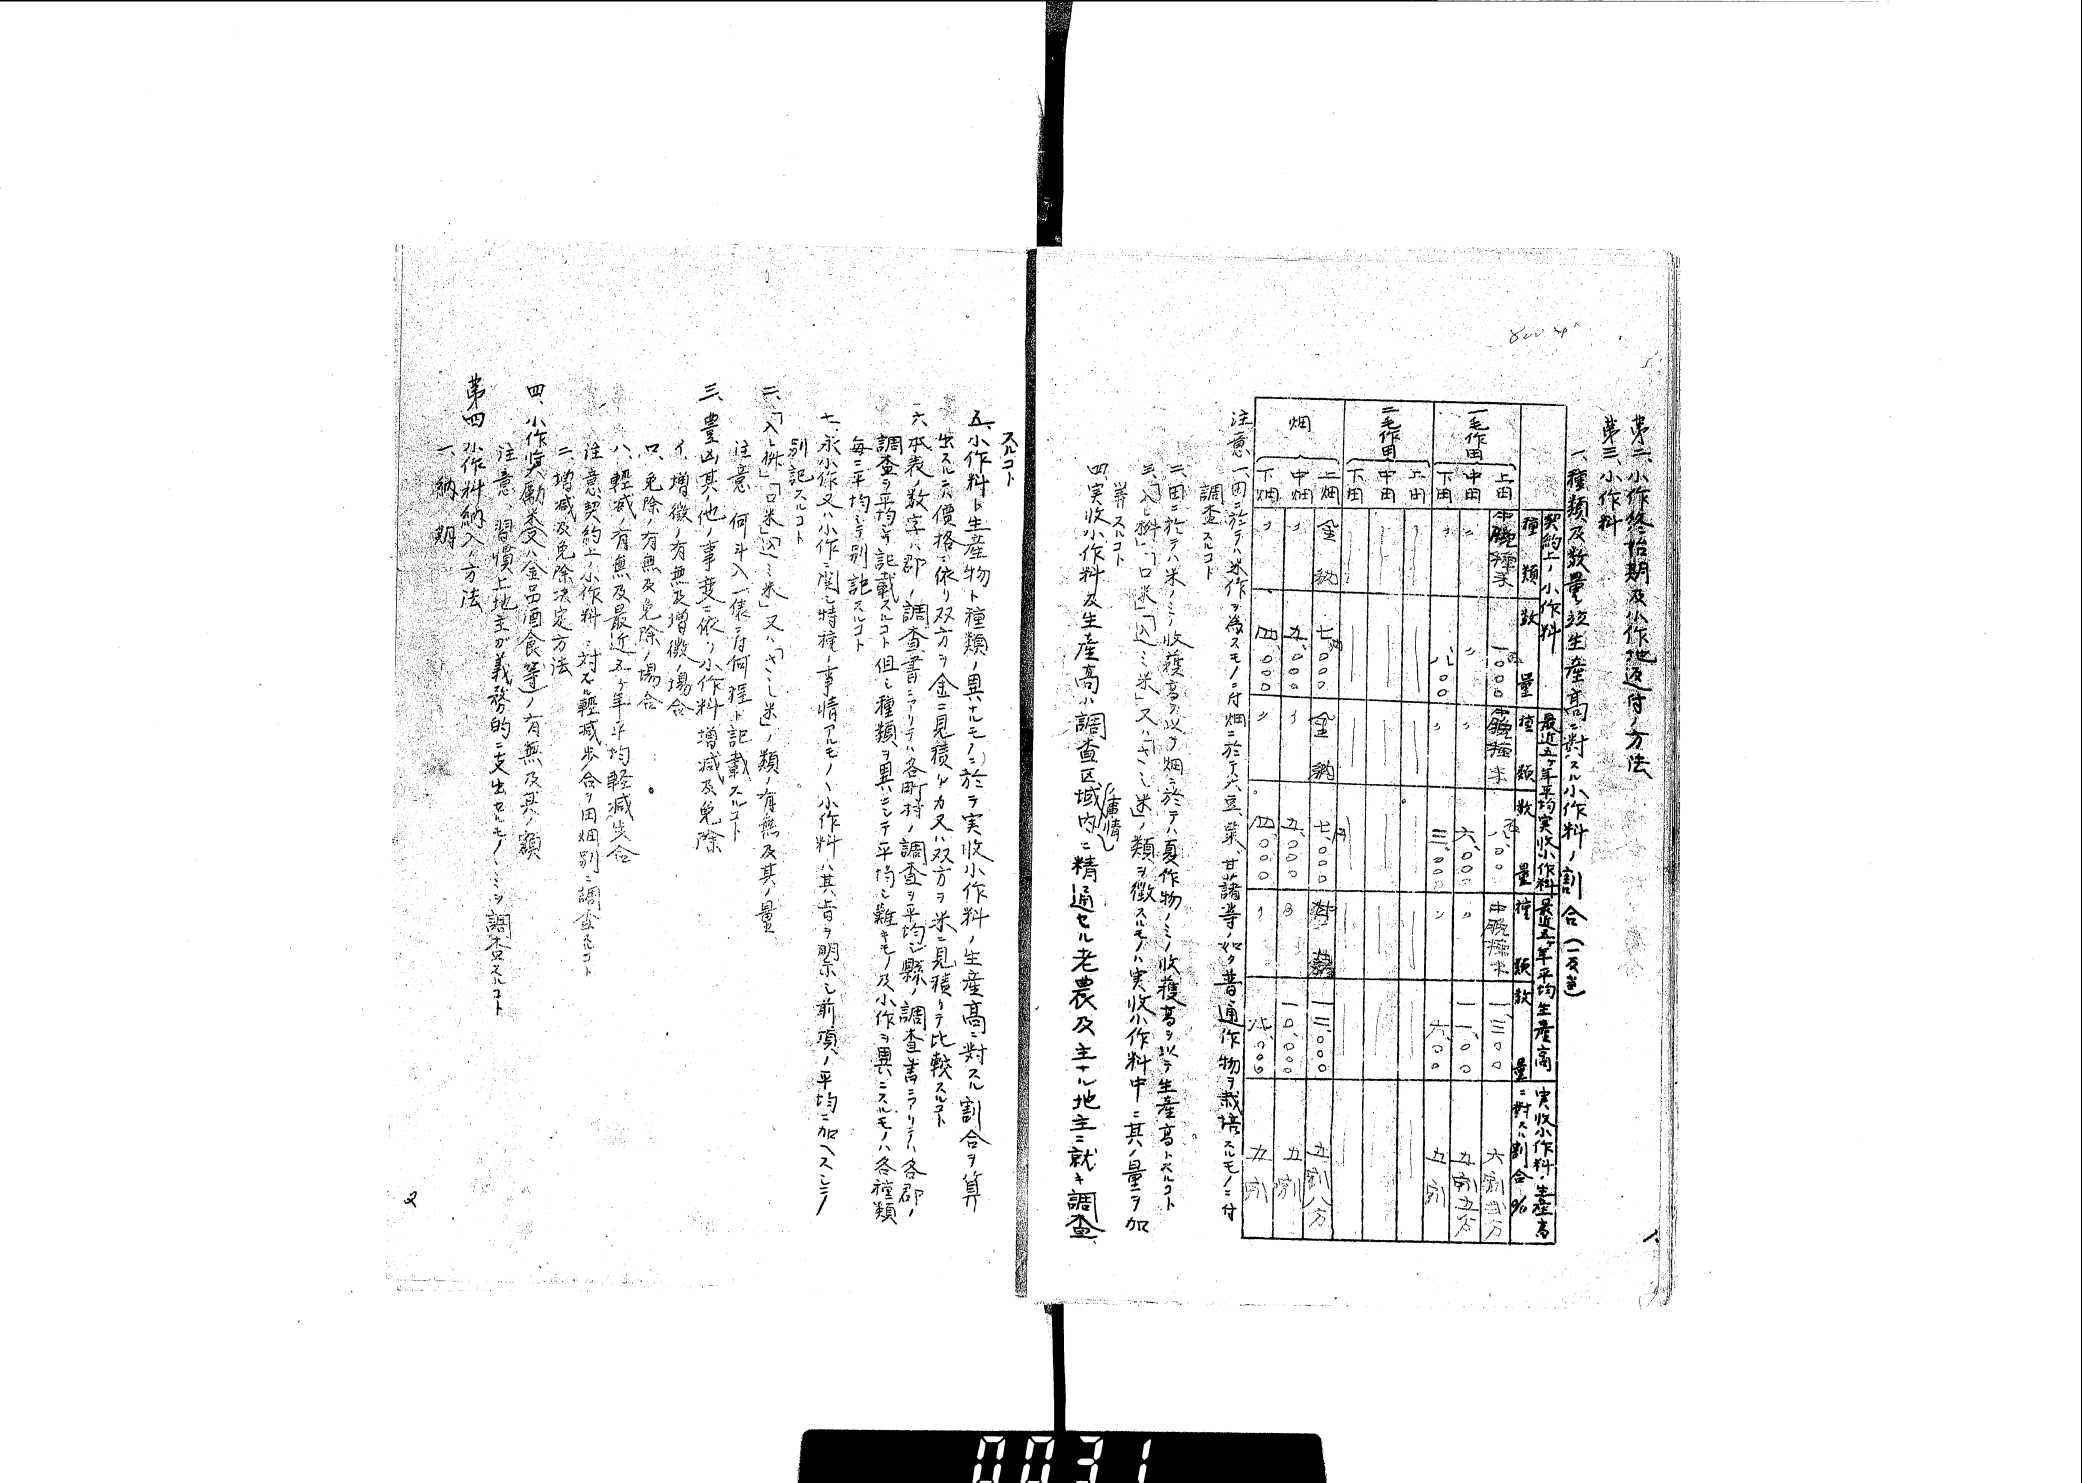 第二、小作終始期及小作地返付ノ方法
第三、小作料
一、種類及数量並生産高ニ對スル小作料ノ割合(一反当)
契約上ノ小作料
最近五ヶ年平均実收小作料
最近五ヶ年平均生産高
実收小作料ノ生産高ニ對スル割合%
種類 数量 種類 数量 種類 数量
一毛作田 上田 中田 下田
二毛作田 上田 中田 下田
畑 上畑 中畑 下畑
上田 一、〇〇〇 八、〇〇 一、三〇〇
中田 〃 〃 〃 六、〇〇〇 〃 一一、〇〇 五割五分
下田 〃 八、〇〇 〃 三、〇〇〇 〃 六、〇〇 五割
上畑 金納 七、〇〇〇 金納 七、〇〇〇 一二、〇〇〇 五割八分
中畑 〃 五、〇〇〇 〃 五、〇〇〇 〃 一〇、〇〇〇 五割
下畑 〃 四、〇〇〇 〃 四、〇〇〇 〃 八、〇〇〇 五割
注意 一、田ニ於テハ米作ヲ為スモノニ付畑ニ於テハ大豆、粟、甘藷等ノ如ク普通作物ヲ栽培スルモノニ付
調査スルコト
二、田ニ於テハ米ノミノ收穫高ヲ以テ畑ニ於テハ夏作物ノミノ收穫高ヲ以テ生産高トスルコト
三、「入レ桝」「口米」「込ミ米」又ハ「さし米」ノ類ヲ徴スルモノハ実收小作料中ニ其ノ量ヲ加
算スルコト
四、実收小作料及生産高ハ調査区域内ニ精通セル老農及主ナル地主ニ就キ調査
スルコト
五、小作料ト生産物ト種類ノ異ナルモノニ於テ実收小作料ノ生産高ニ對スル割合ヲ算
出スルニハ價格ニ依リ双方ヲ金ニ見積リカ又ハ双方ヲ米ニ見積リテ比較スルコト
六、本表ノ数字ハ郡ノ調査書ニアリテハ各町村ノ調査ヲ平均シ縣ノ調査書ニアリテハ各郡ノ
調査ヲ平均シテ記載スルコト但シ種類ヲ異ニシテ平均シ難キモノ及小作ヲ異ニスルモノハ各種類
毎ニ平均シテ別記スルコト
七、永小作又ハ小作ニ関シ特種ノ事情アルモノノ小作料ハ其旨ヲ明示シ前項ノ平均ニ加ヘスシテ
別記スルコト
二、「入レ桝」「口米」「込ミ米」又ハ「さし米」ノ類ノ有無及其ノ量
注意 何斗入一俵ニ付何程ト記載スルコト
三、豊凶其ノ他ノ事変ニ依ル小作料増減及免除
イ、増徴ノ有無及増徴ノ場合
ロ、免除ノ有無及免除ノ場合
ハ、輕減ノ有無及最近五ヶ年平均軽減歩合
注意契約上ノ小作料ニ対スル輕減歩合ヲ田畑別ニ調査スルコト
ニ、増減及免除決定方法
四、小作奨勵米又ハ金品酒食等ノ有無及其ノ額
注意、習慣上地主ガ義務的ニ支出セルモノノミヲ調査スルコト
第四 小作料納入ノ方法
一、納期
2
0031